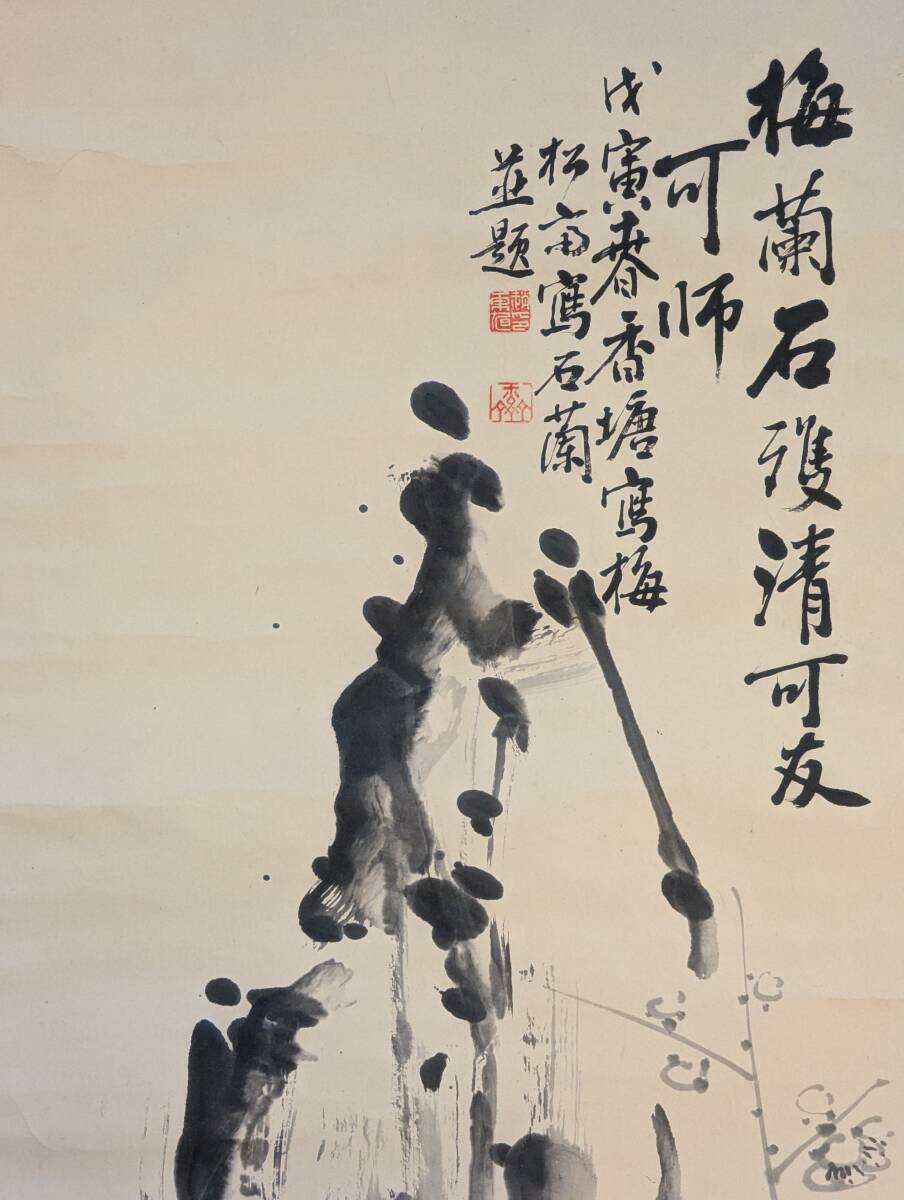 梅蘭石雙清可友
可師
戊寅春香塘寫梅
松斎寫石蘭
並題